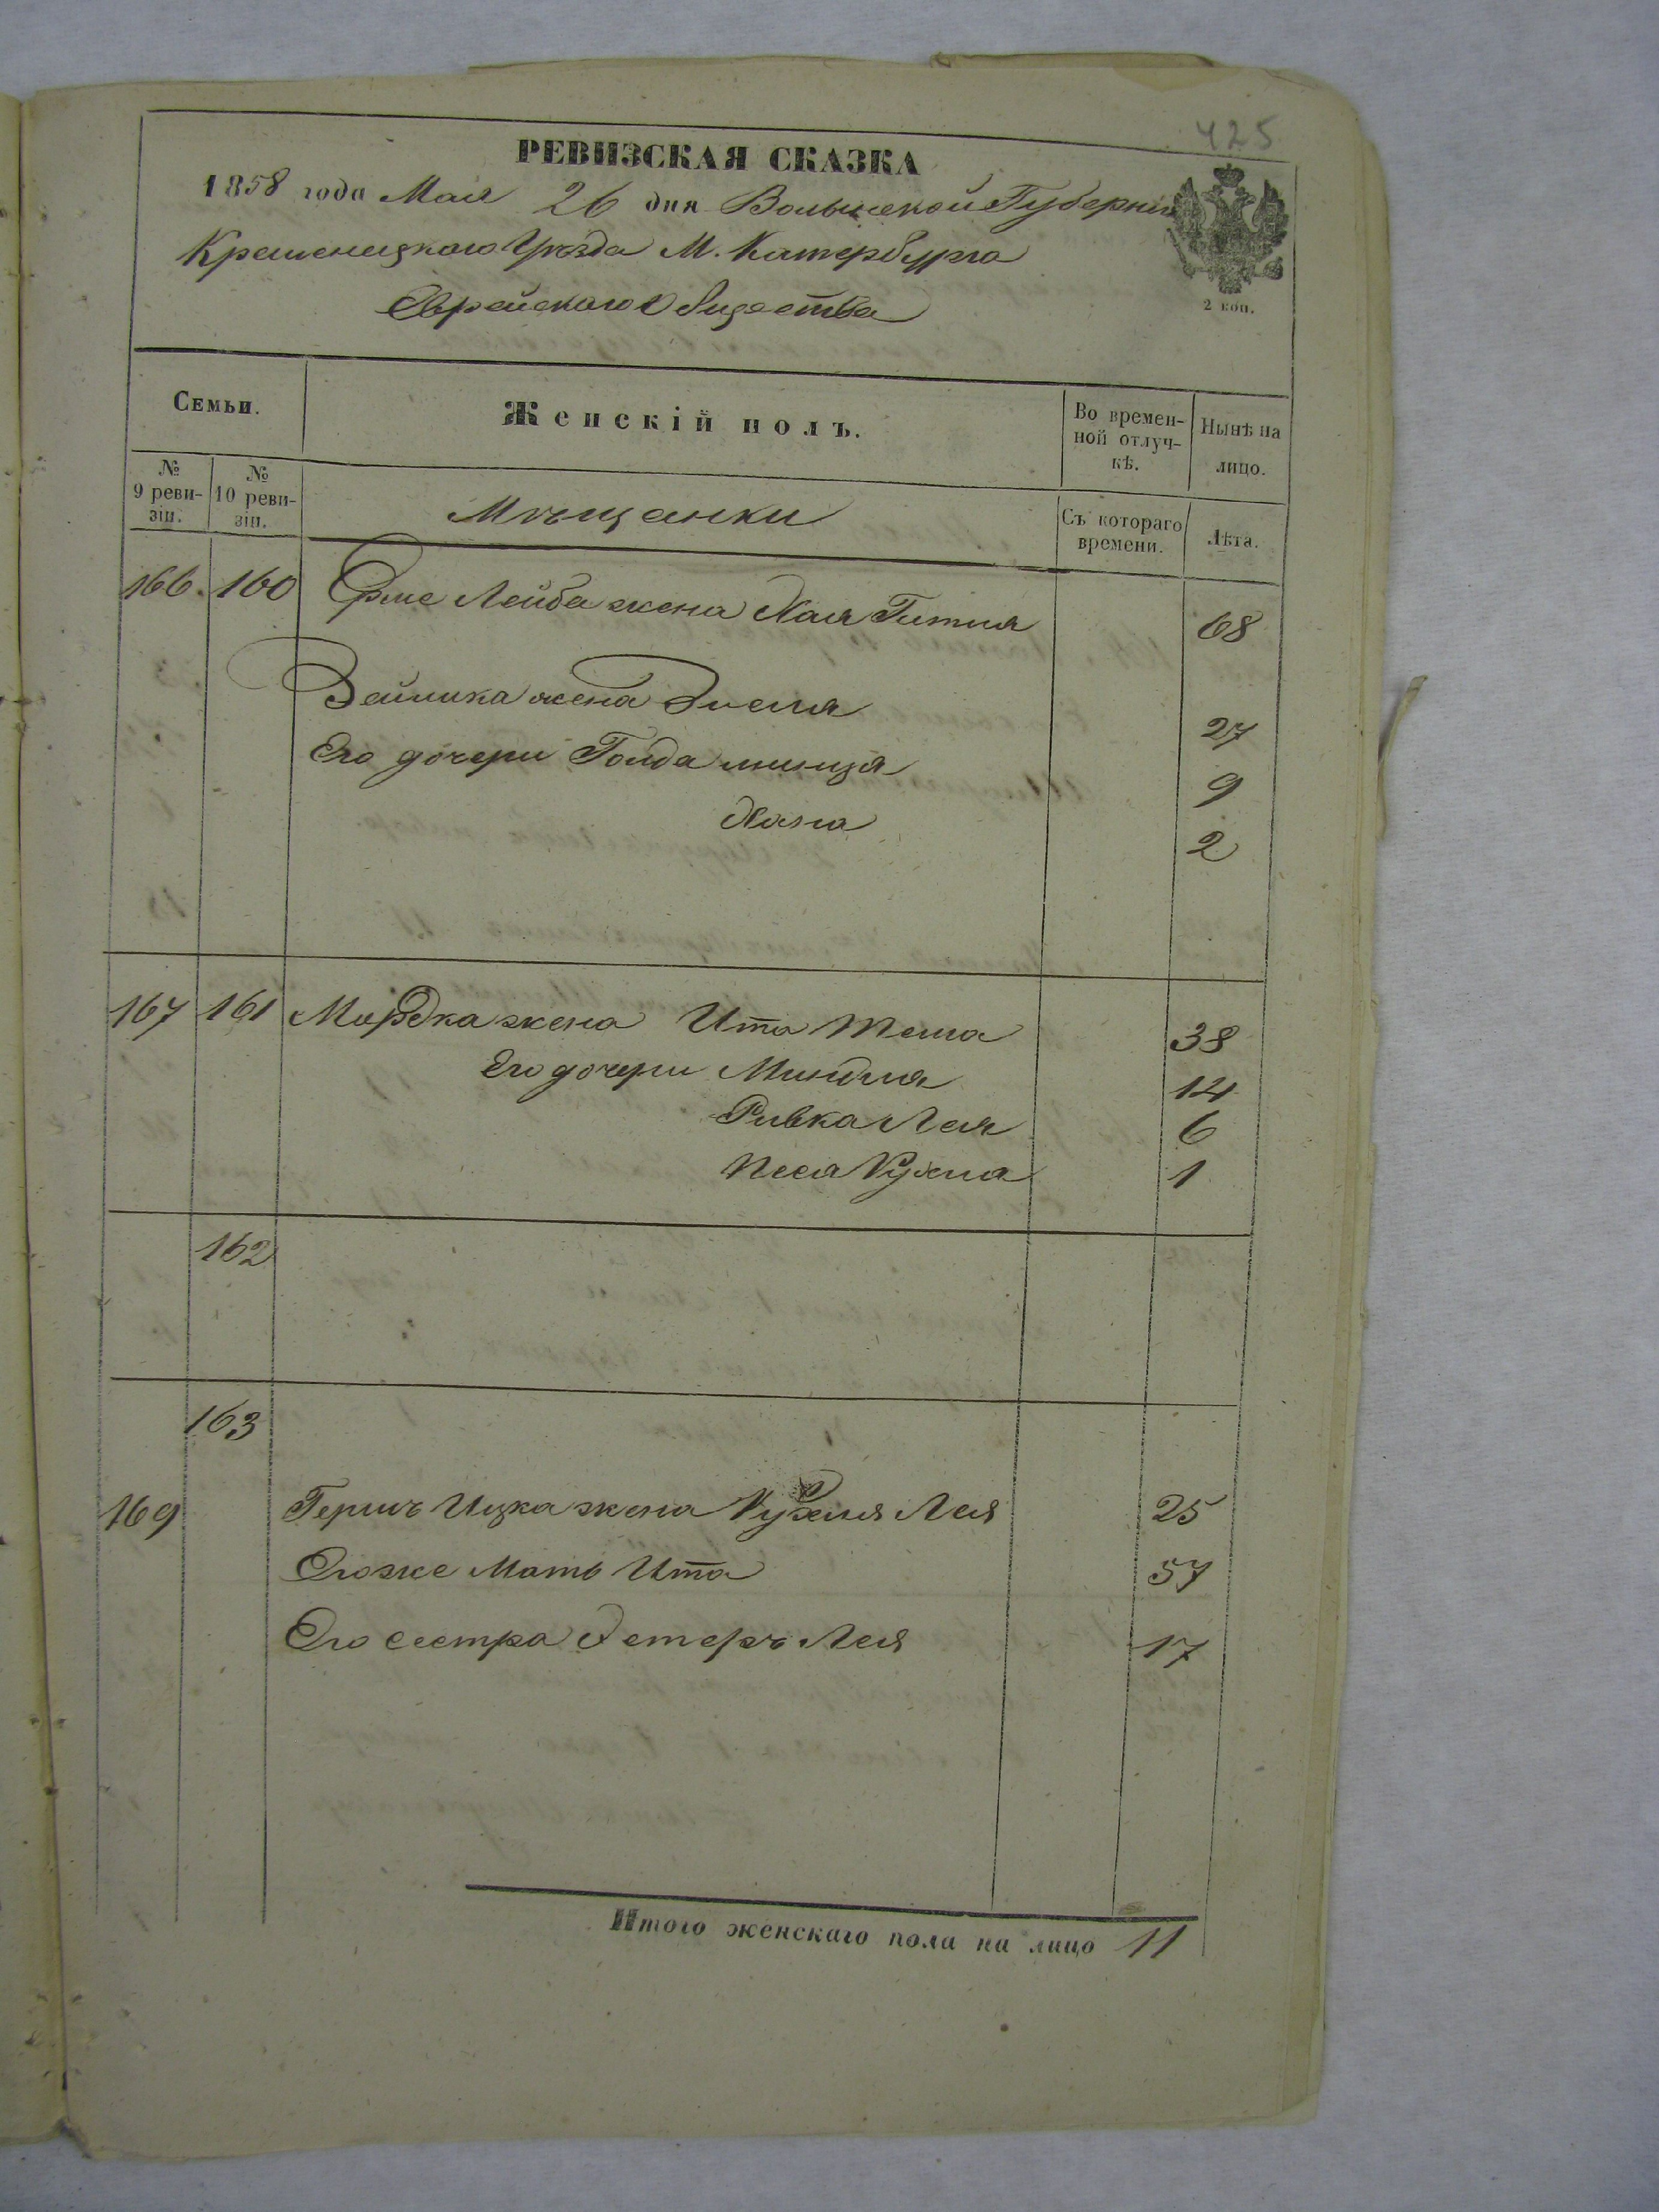 425
РЕВИЗСКАЯ СКАЗКА
1858 года Мая 26 дня Волынской Губернии
Кременецкаго Уѣзда М. Катербурга
Еврейскаго Общества
2 коп.
Семьи.
Женскій полъ.
Во времен-
ной отлуч-
кѣ.
Нынѣ на
лицо.
№
9 реви-
зіи.
№
10 реви-
зіи.
Мѣщанки
Съ котораго
времени.
Лѣта.
166. 160 Лейба жена Хая Гитля 68
Зейлика жена 27
Его дочери Голда 9
Хана 2
167 161 Мордка жена Ита 38
Его дочери Миндля 14
Ривка Лея 6
Песя Рухля 1
162
163
169 Гершъ Ицка жена Рухля Лея 25
Егоже Мать Ита 57
Его сестра Эстеръ Лея 17
Итого женскаго пола на лицо 11